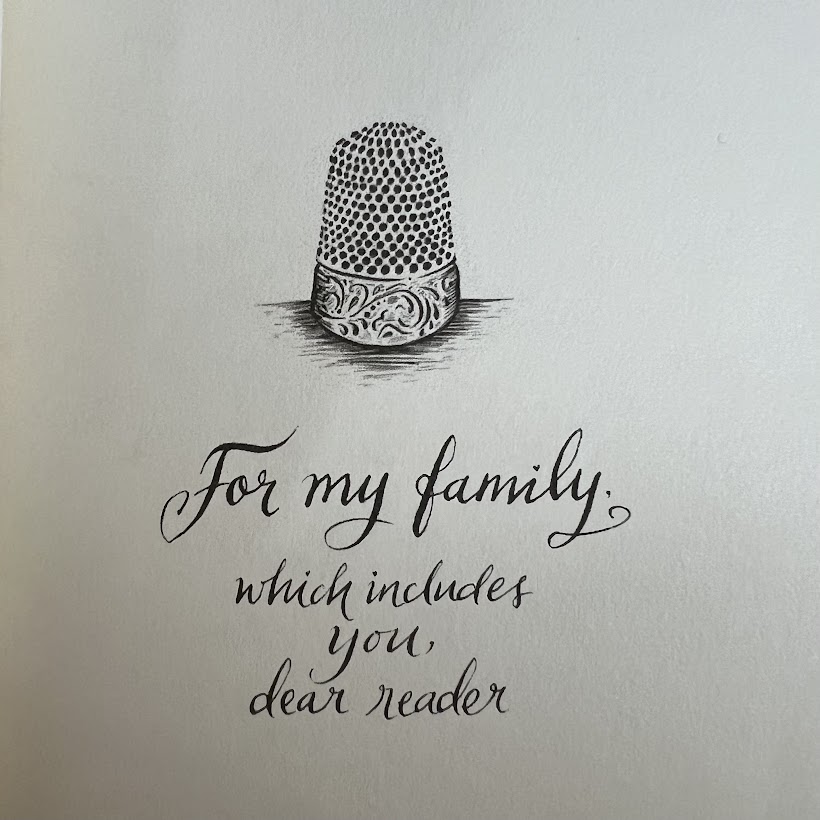 For my family.
which includes
you,
dear reader